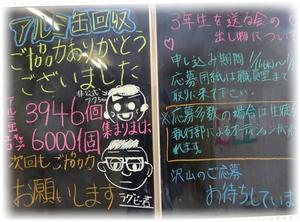 アルミ缶回収
ご協力ありがとう
ございました
アルミ缶 3946個
集まりました
6000個
次回もご協力
お願いします
ラグビー君
3年生を送る会の
出し物について
申し込み期間
応募用紙は職員室まで
取りに来て下さい。
※応募多数の場合は生徒
執行部によるオーディション
沢山のご応募
お待ちしていま